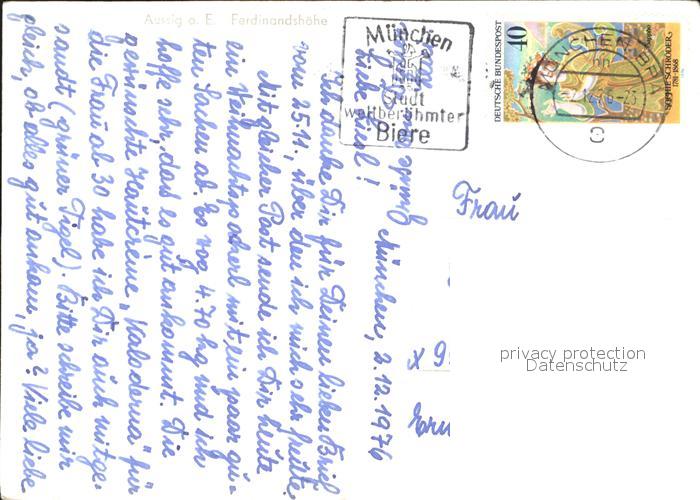 Aussig a. E. Ferdinandshöhe
München
Stadt
weltberühmter
Biere
DEUTSCHE BUNDESPOST
40
SOPHIE SCHRÖDER
1781-1868
München, 2.12.1976
ich danke Dir für Deinen lieben Brief
vom 25.11., über den ich mich sehr freute.
Mit gleicher Post sende ich Dir heute
ein Weihnachtspackerl mit ein paar gu-
ten Sachen ab. Es wog 4.70 kg und ich
hoffe sehr, das es gut ankommt. Die
gewünschte Hautcreme „Kaloderma" für
die Frau ab 30 habe ich Dir auch mitge-
sandt (grüner Tigel). Bitte schreibe mir
gleich, ob alles gut ankam, ja? Viele liebe
Frau
x 9
privacy protection
Datenschutz